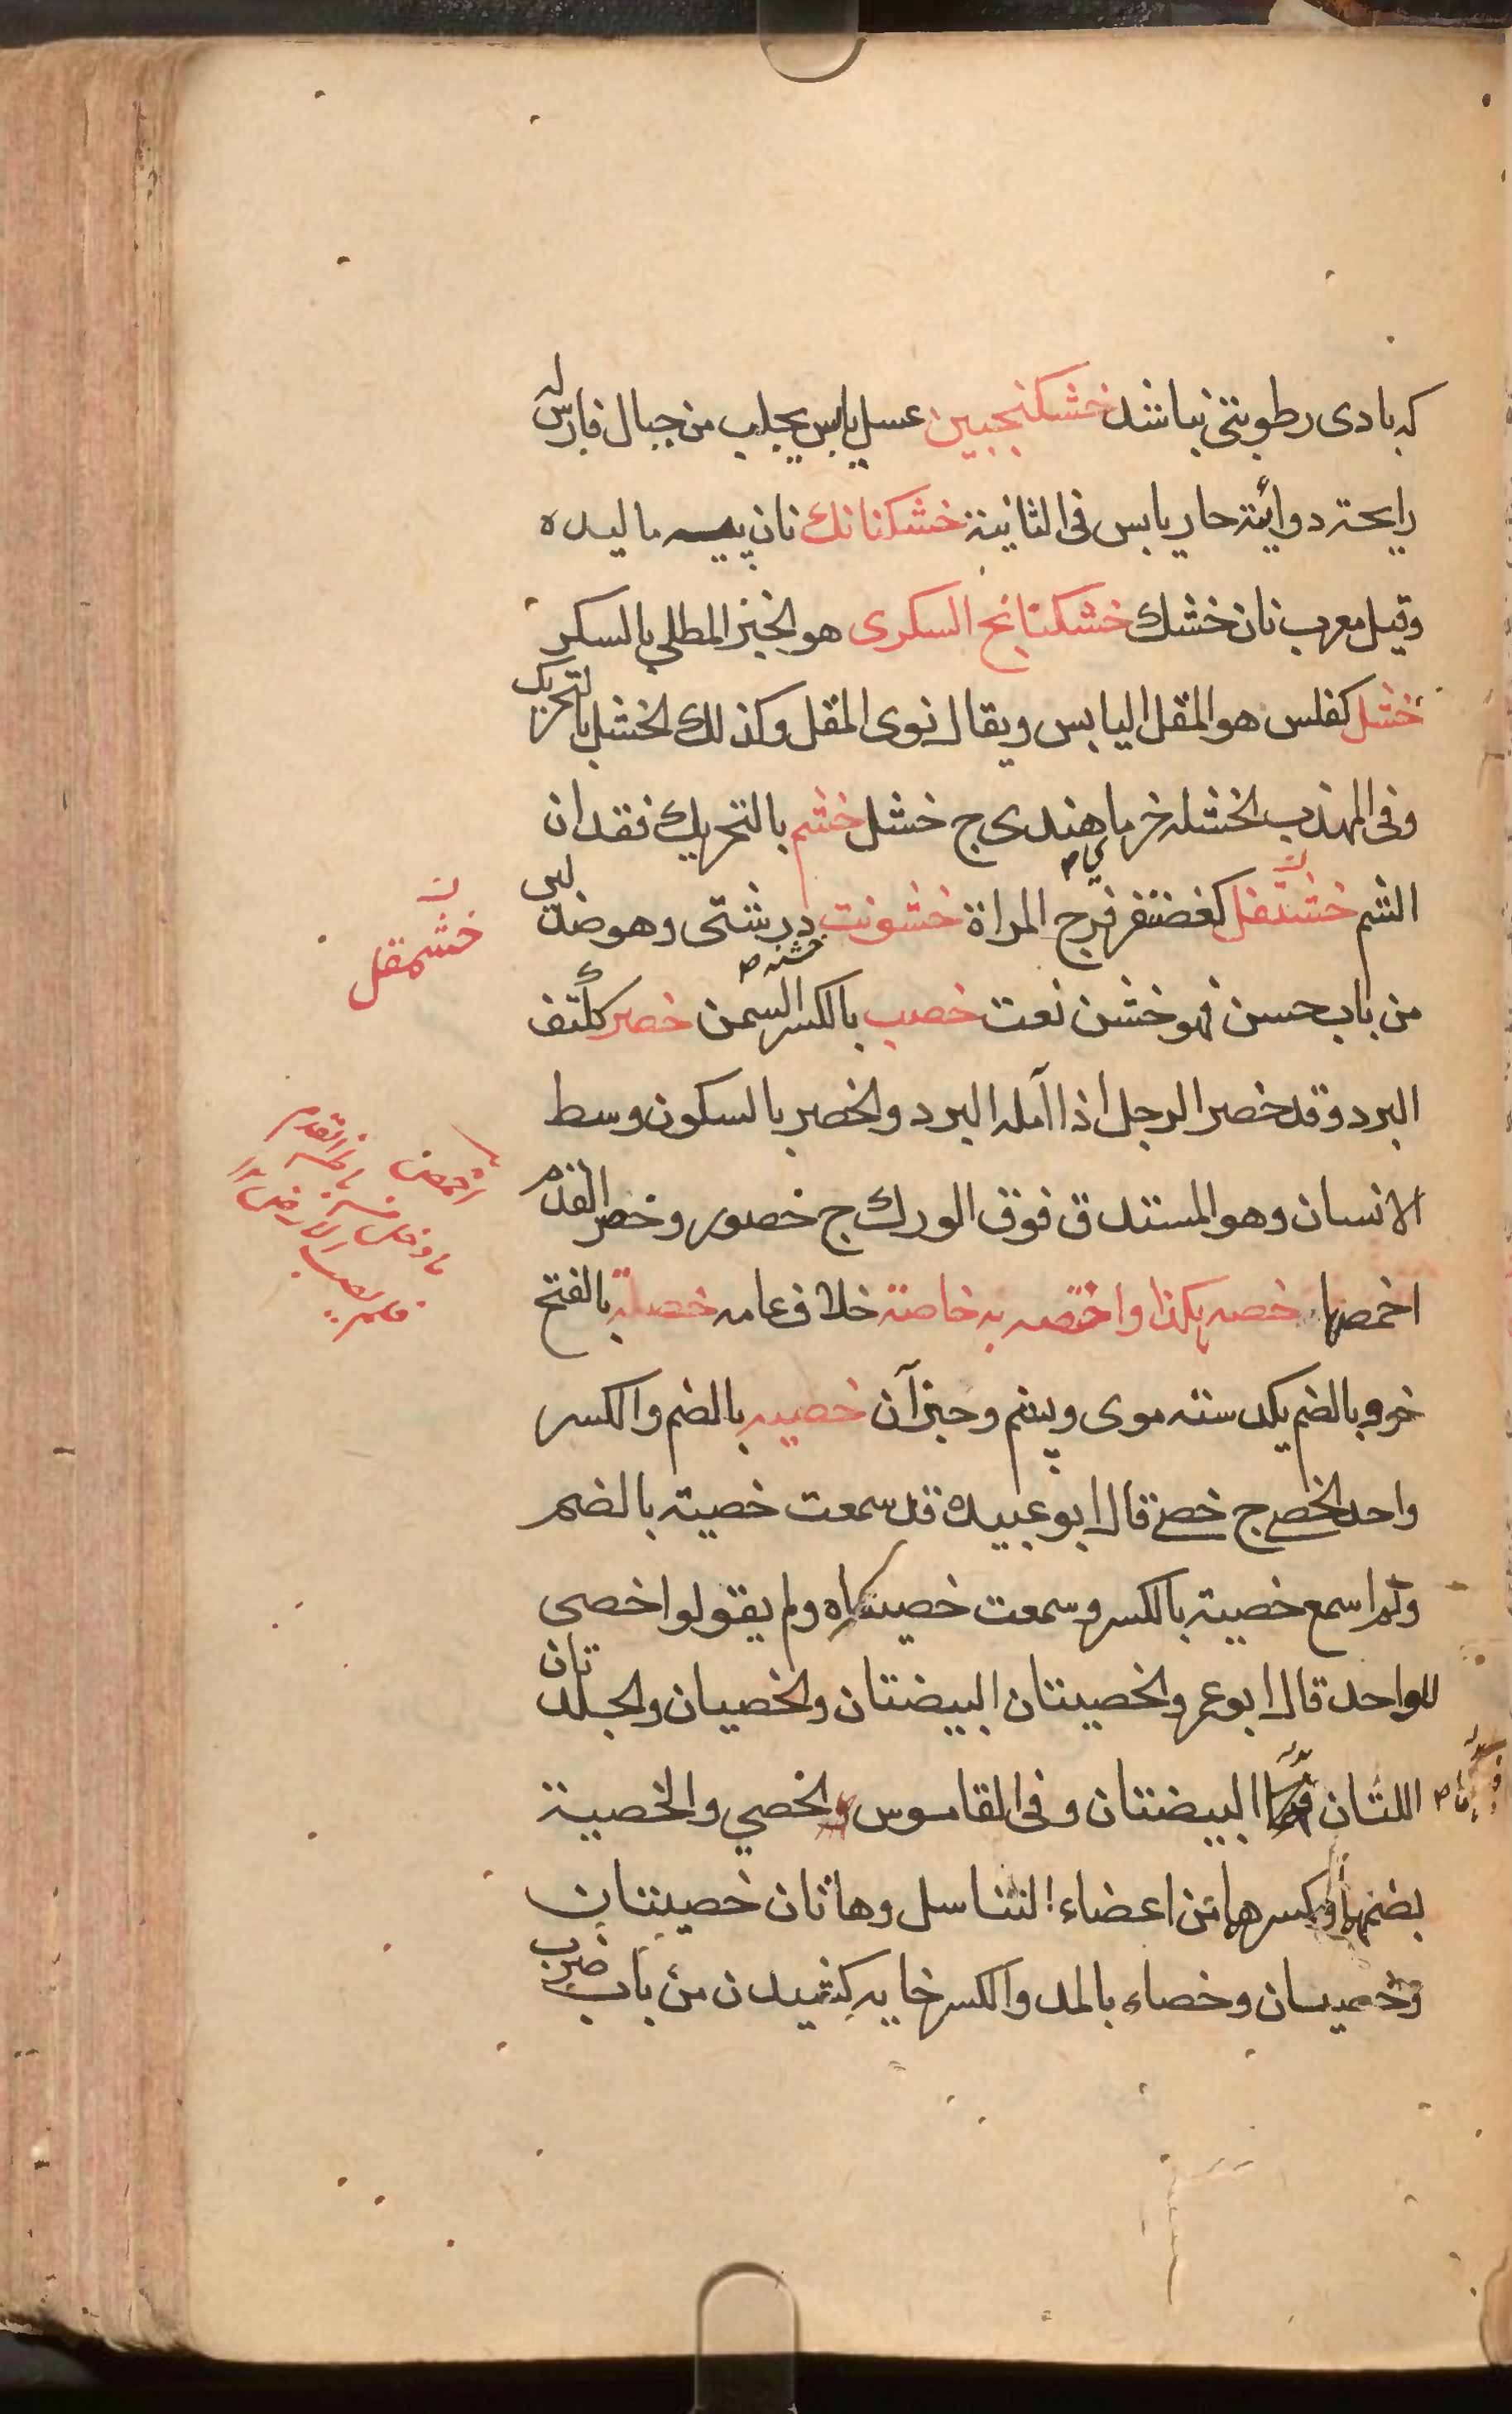 که بادی رطوبتی نباشد خشکنجبین عسل یابس یجلب من جبال فارس له
رایحته دوائیته حار یابس فی الثانیته خشکنانك نان پیه مالیده
وقیل معرب نان خشك خشکنانج السکری هو الخبز المطلی بالسکر
خشل کفلس هو المقل الیابس ویقال نوی المقل وکذلك الخشل بالتحریك
وفی المهذب الخشله خرما هندی ج خشل خشم بالتحریك فقدان
الشم خشنفل کغضنفر فرج المراة خشونت درشتی وهو ضد لین
من باب حسن فهو خشن نعت خصب بالکسر السمن خصر ککتف
البرد وقد خصر الرجل اذا آمله البرد والخصر بالسکون وسط
الانسان وهو المستدق فوق الورك ج خصور وخصر القدم
اخمصها خصه بکذا واختصه به خاصته خلاف عامه خصلة بالفتح
خوه بالضم یکدسته موی وپشم وجز آن خصیه بالضم والکسر
واحد الخصی ج خصی قال ابو عبیده قد سمعت خصیته بالضم
ولم اسمع خصیته بالکسر وسمعت خصیاه ولم یقولوا خصی
للواحد قال ابو عمرو الخصیتان البیضتان والخصیان والجلدتان
اللتان البیضتان وفی القاموس والخصی والخصیة
بضمها وکسرها من اعضاء التناسل وهاتان خصیتان
وخصیان وخصاء بالمد والکسر خایه کشیدن من باب ضرب
خشمقل